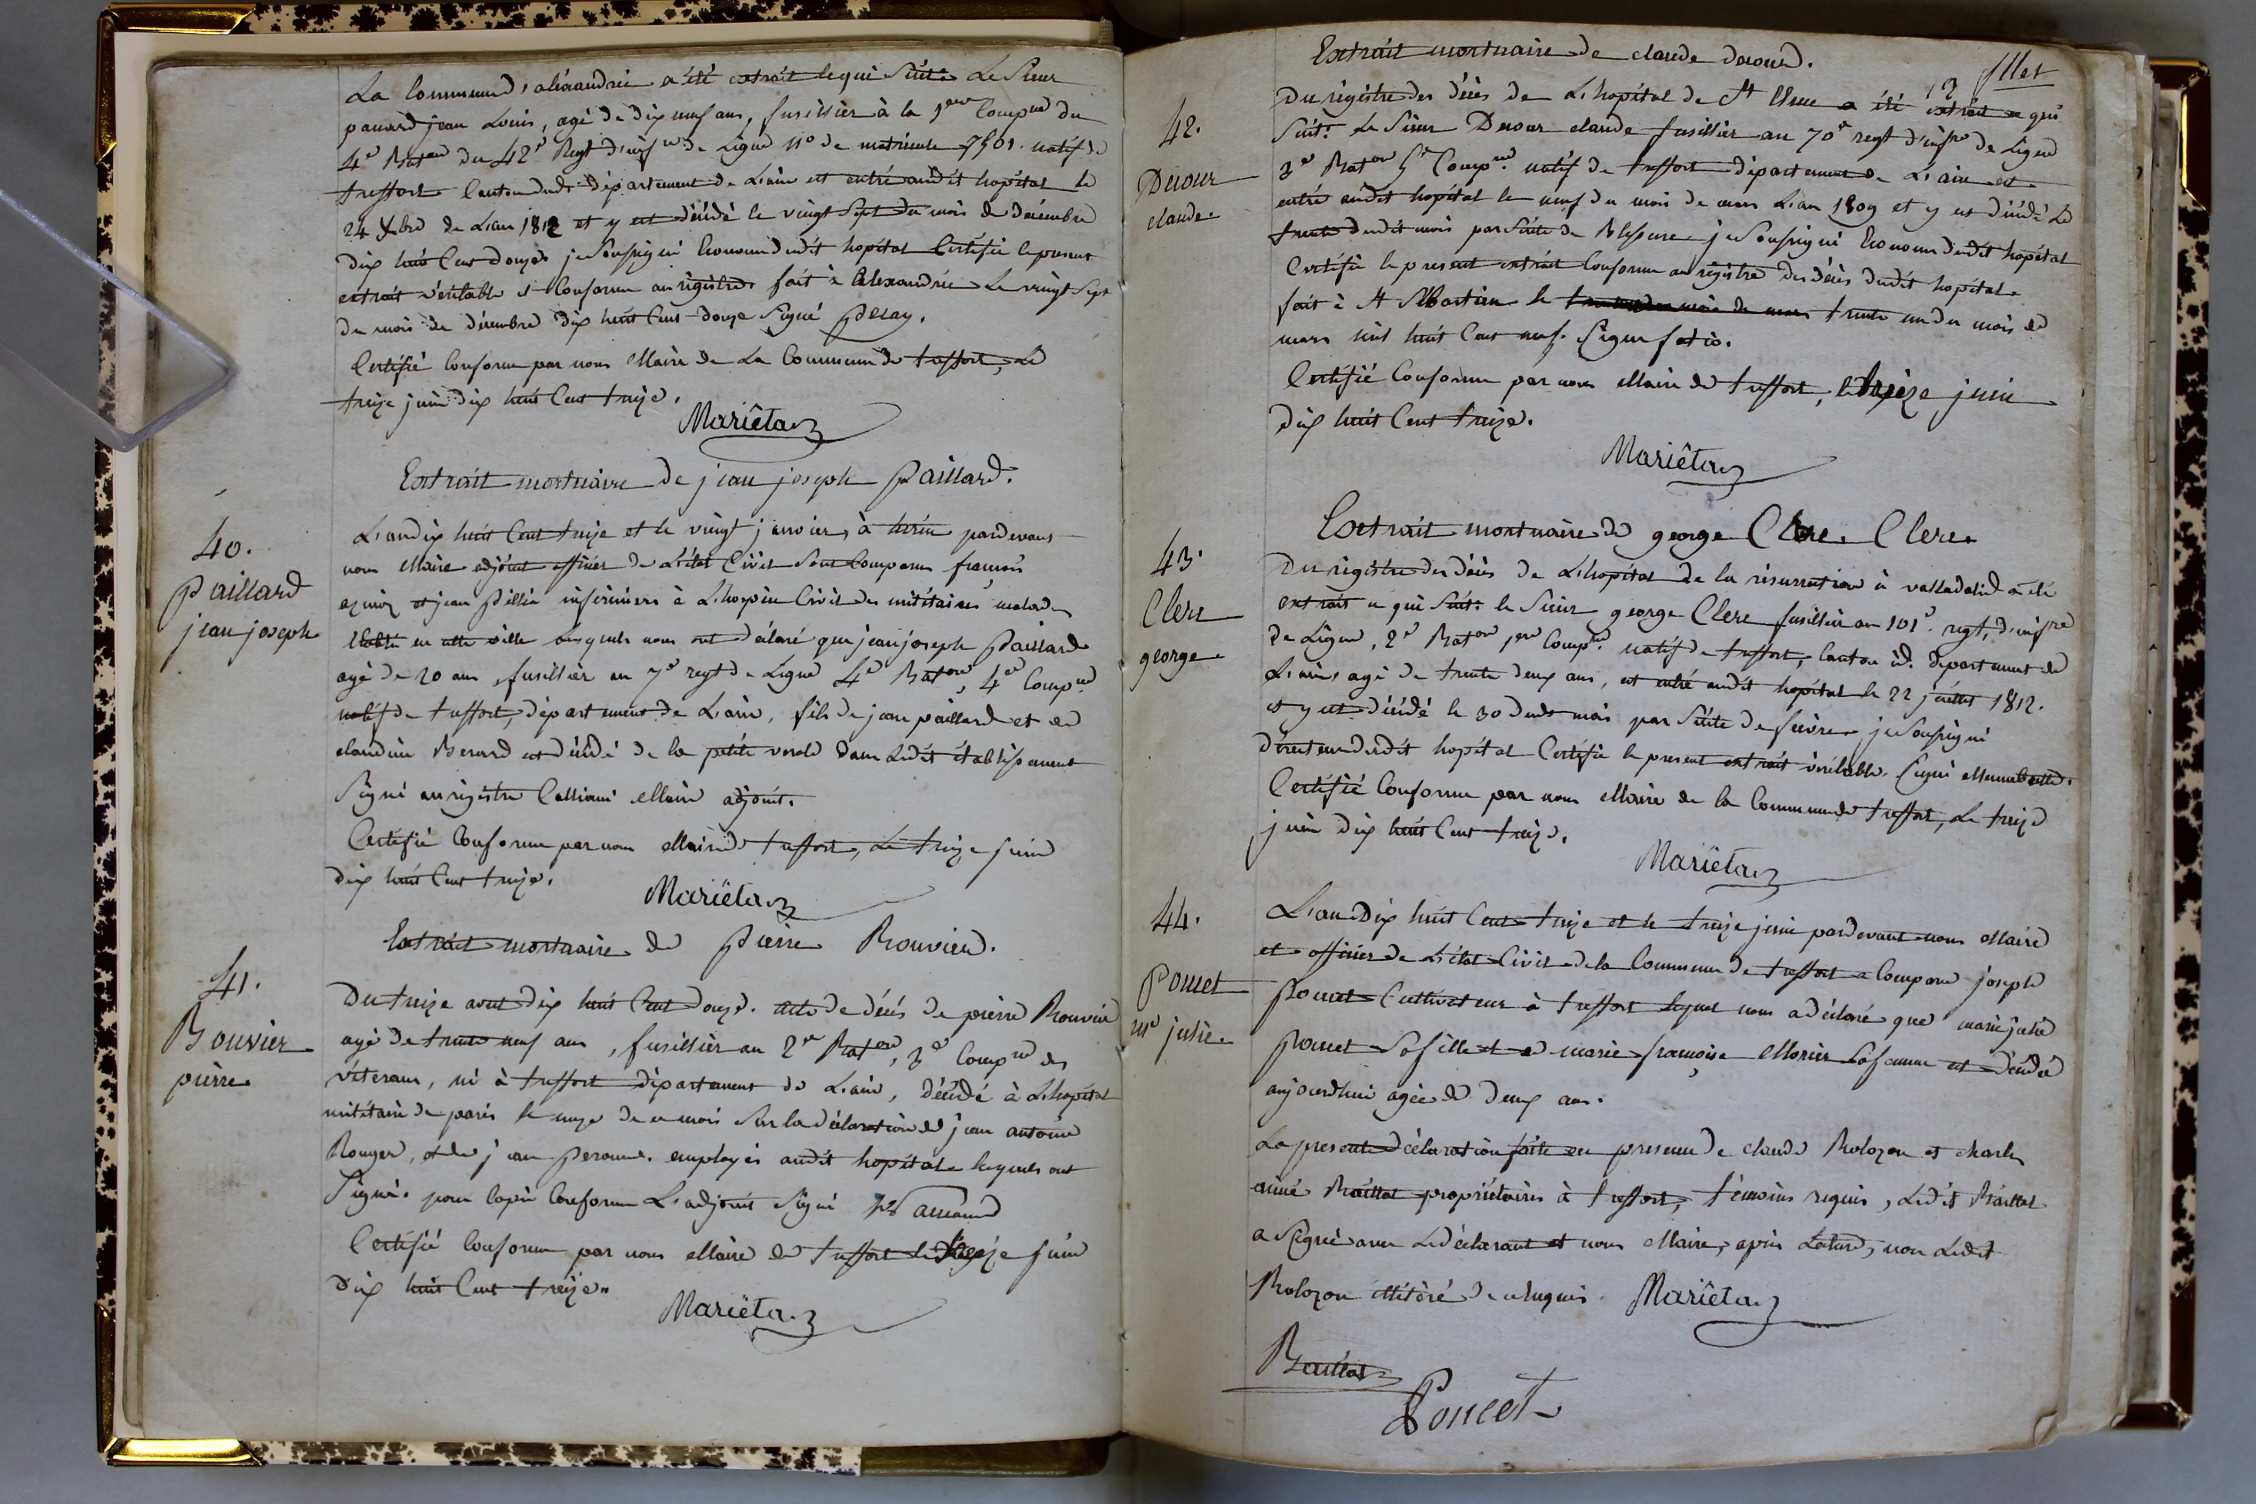 La Commune d'alexandrie a été extrait ce qui Suit: Le Sieur
panard jean Louis, agé de dix neuf ans, fusillier à la 1ere Compnie du
4e Baton du 42e Regt d'infrie de Ligne No de matricule 7501. natif de
treffort Canton dudt département de L'ain est entré audit hopital le
24 Xbre de L'an 1812 et y est décédé le vingt Sept du mois de décembre
dix huit Cent douze je Soussigné Econome dudit hopital Certifie le present
extrait véritable et Conforme au registre fait à Alexandrie Le vingt Sept
du mois de décembre dix huit Cent douze Signé
Certifié Conforme par nous Maire de La Commune de treffort, Le
treize juin dix huit Cent treize.
Mariêtaz
Extrait mortuaire de jean joseph Paillard.
40.
Paillard
jean joseph
L'an dix huit Cent treize et le vingt janvier, à turin pardevant
nous Maire adjoint officier de L'état Civil Sont Comparus françois
et jean infirmiers à L'hospice Civil des militaires malades
établi en cette ville lesquels nous ont déclaré que jean joseph Paillard
agé de 20 ans, fusillier au 7e regt de Ligne 4e Baton, 4e Compnie
natif de treffort, département de L'ain, fils de jean paillard et de
claudine Berard est décédé de la petite verole dans Ledit établissement
Signé au registre Calliani Maire adjoint.
Certifié Conforme par nous Maire de treffort, Le treize juin
dix huit Cent treize.
Mariëtaz
Extrait mortuaire de Pierre Bouvier.
41.
Bouvier
pierre
Du treize aout dix huit Cent douze. acte de décés de pierre Bouvier
agé de trente neuf ans, fusillier au 2e Baton, 3e Compnie de
véterans, né à treffort département de L'ain, décédé à L'hopital
militaire de paris le onze de ce mois Sur la déclaration de jean antoine
Rouger, et de jean Peronne. employés audit hopital lesquels ont
Signé. pour Copie Conforme L'adjoint Signé
Certifié Conforme par nous Maire de treffort le treize juin
dix huit Cent treize.
Mariëtaz
12
Extrait mortuaire de claude ducour.
42.
Ducour
claude
Du registre des décés de L'hopital de St Elme a été extrait ce qui
Suit: Le Sieur Ducour claude fusillier au 70e regt d'infrie de Ligne
3e Baton 5e Compnie natif de treffort département de L'ain est
entré audit hopital le neuf du mois de mars L'an 1809 et y est décédé Le
trente dudit mois par Suite de Blessure je Soussigné Econome dudit hopital
Certifie le present extrait Conforme au registre des décés dudit hopital
fait à St Sébastien le trente du mois de mars trente un du mois de
mars mil huit Cent neuf. Signé fatio.
Certifié Conforme par nous Maire de treffort, le treize juin
dix huit Cent treize.
Mariêtaz
Extrait mortuaire de george Clere Clere
43.
Clere
george
Du registre des décés de L'hopital de la résurrection à valladolid a été
extrait ce qui Suit: le Sieur george Clere fusillier au 101e regt, d'infrie
de Ligne, 2e Baton 1ere Compnie natif de treffort, Canton id. département de
L'ain, agé de trente deux ans, est entré audit hopital le 22 juillet 1812.
et y est décédé le 30 dudt mois par Suite de fievre je Soussigné
directeur dudit hopital Certifie le present extrait véritable. Signé
Certifié Conforme par nous Maire de la Commune de treffort, Le treize
juin dix huit Cent treize.
Mariëtaz
44.
Poncet
Mie julie
L'an Dix huit Cent treize et le treize juin pardevant nous Maire
et officier de L'état Civil de la Commune de treffort a Comparu joseph
Poncet Cultivateur à treffort lequel nous a déclaré que marie julie
Poncet Sa fille et de marie françoise Morier Sa femme est décédée
aujourdhui agée de deux ans.
La presente déclaration faite en presence de claude Bolozon et charles
aimé Baillat propriétaires à treffort, témoins requis, Ledit Baillat
a Signé avec Le déclarant et nous Maire, après Lecture, non Ledit
Bolozon illitéré de ce enquis. Mariêtaz
Baillat
Poncet